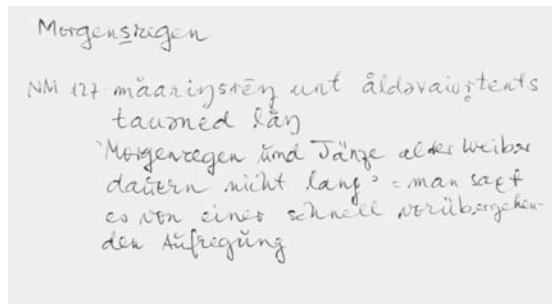 Morgensregen
NM 127 måariŋsrēŋ unt åldəvaivərtents
tauəned låŋ
'Morgenregen und Tänze alter Weiber
dauern nicht lang' = man sagt
es von einer schnell vorübergehen-
den Aufregung